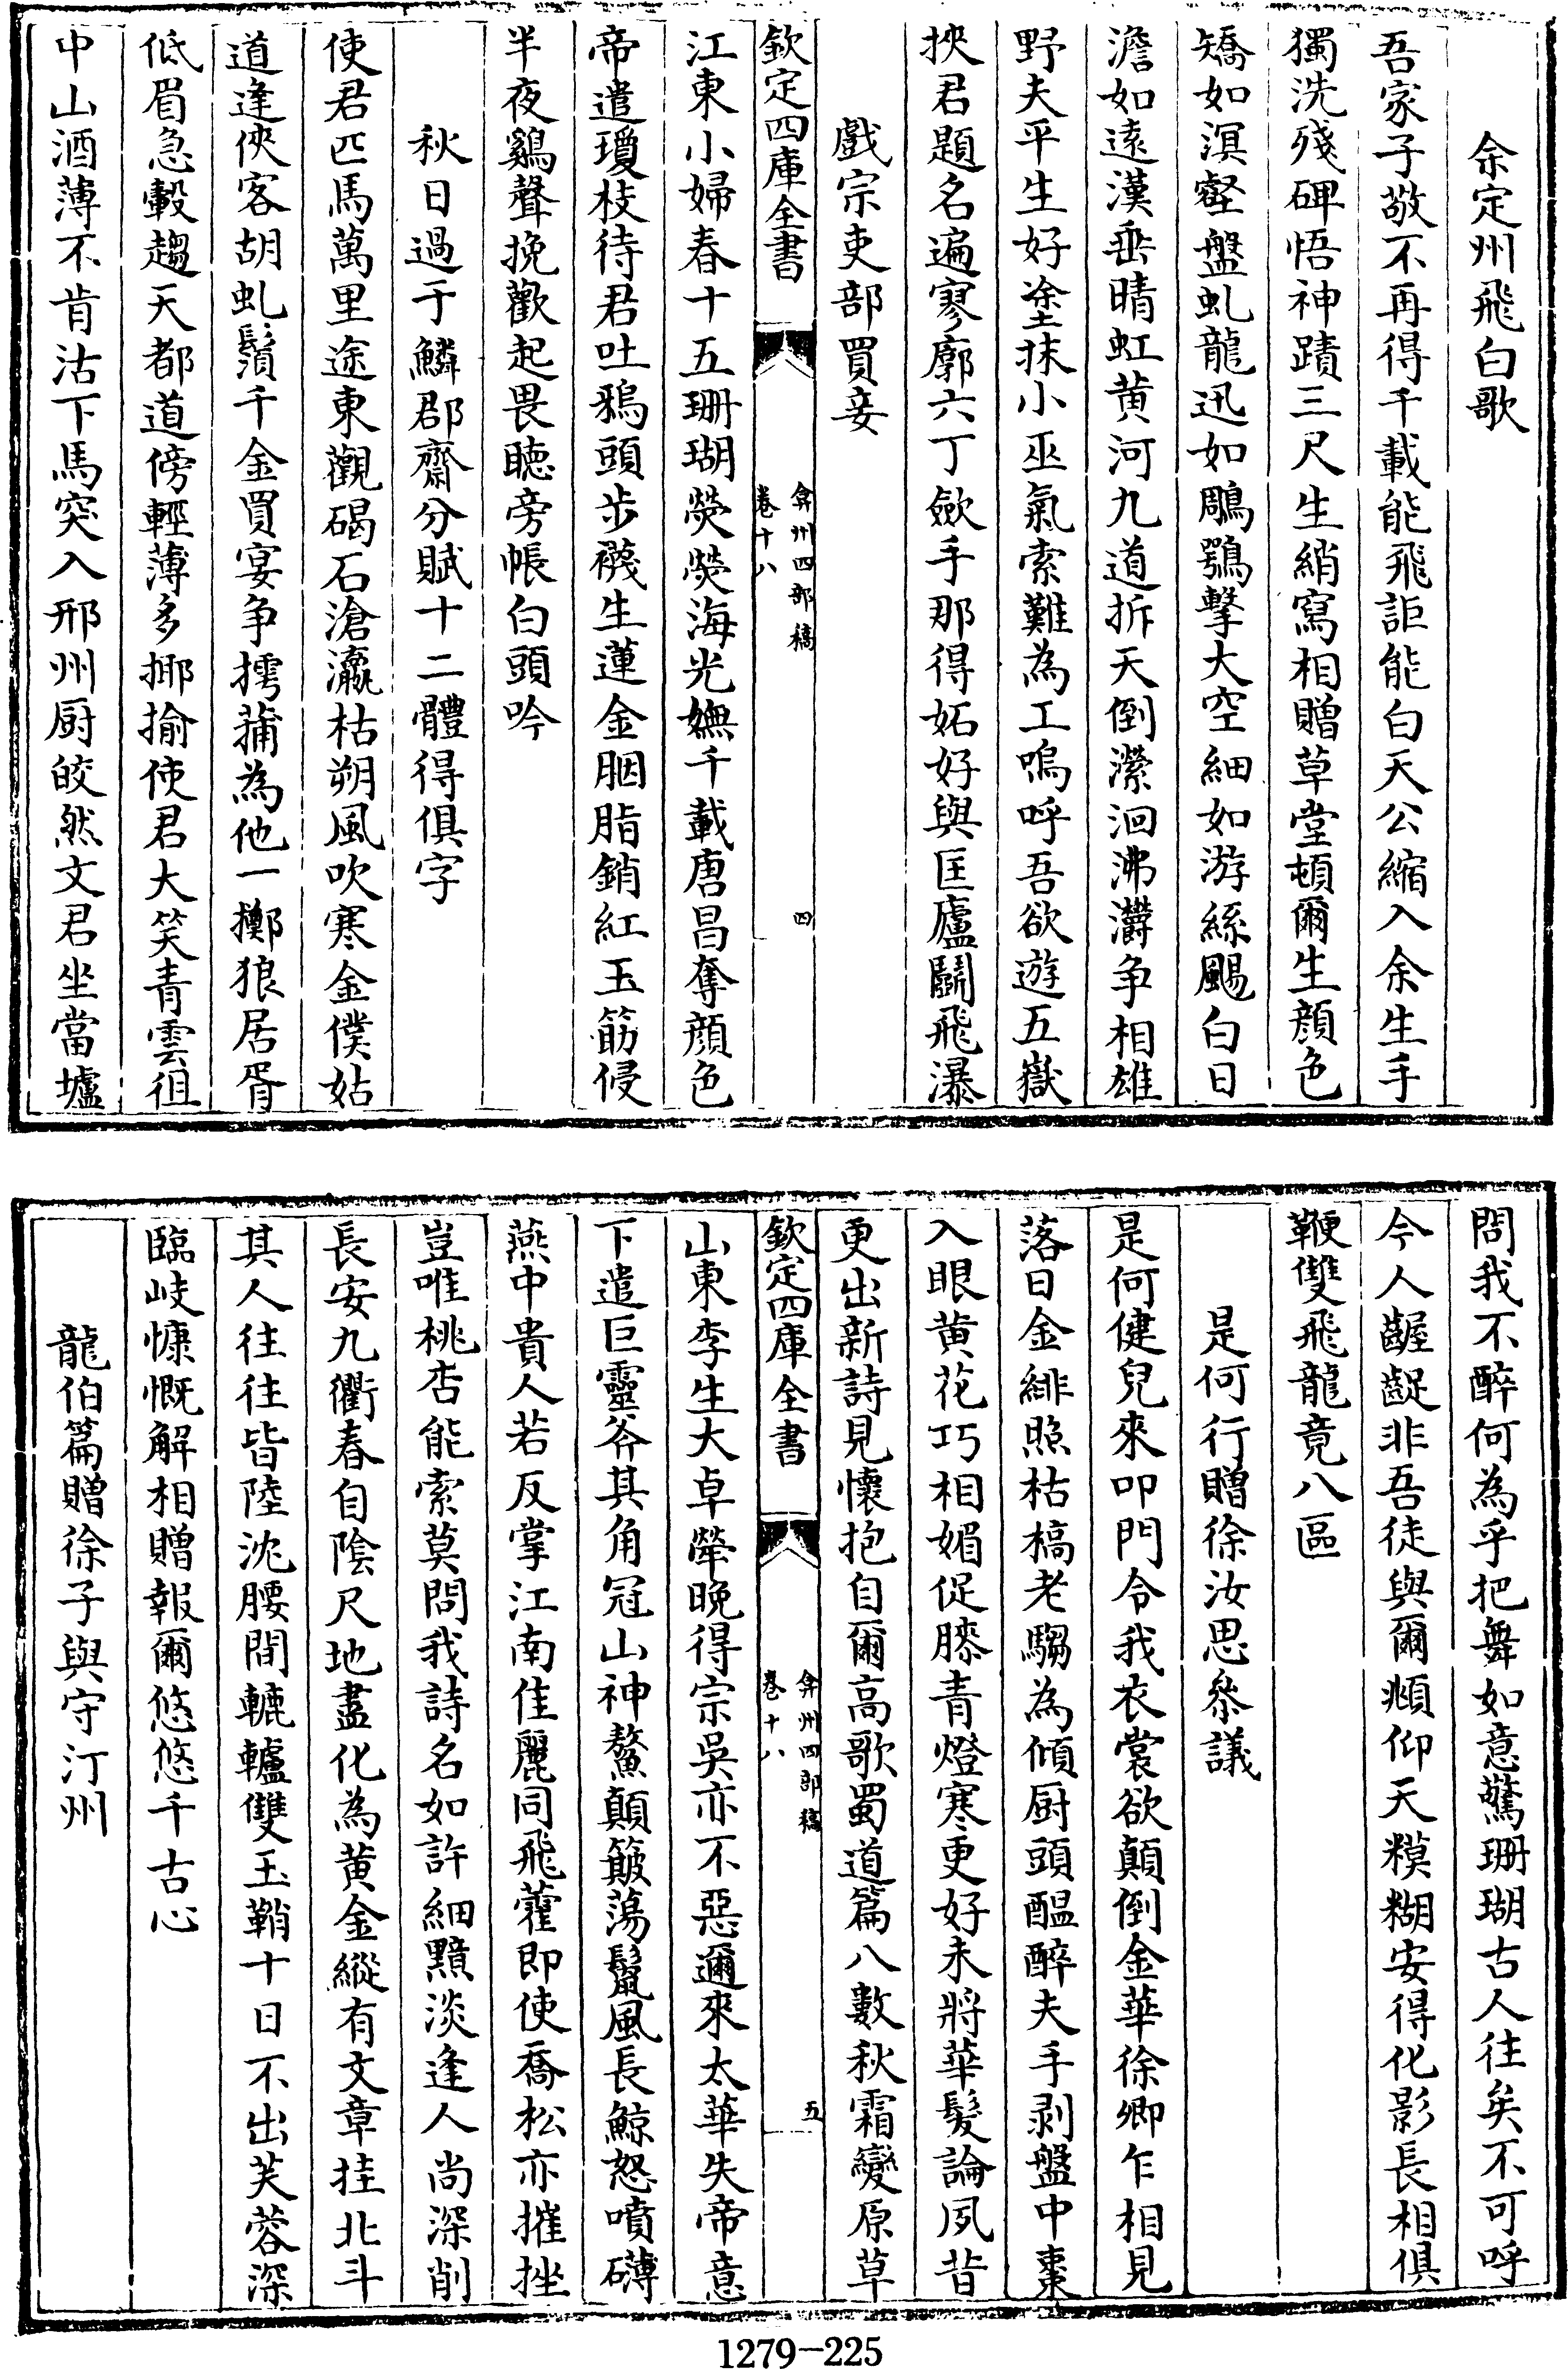 余定州飛白歌
吾家子敬不再得千載能飛詎能白天公縮入余生手
獨洗殘碑悟神蹟三尺生綃寫相贈草堂頓爾生顔色
矯如溟壑盤虬龍迅如鵰鶚擊大空細如游絲颺白日
澹如逺漢垂晴虹黄河九道拆天倒瀠洄沸灂争相雄
野夫平生好塗抹小巫氣索難為工嗚呼吾欲遊五嶽
挾君題名遍寥廓六丁斂手那得妬好與匡廬鬭飛瀑
戲宗吏部買妾
欽定四庫全書
弇州四部稿
卷十八
四
江東小婦春十五珊瑚熒熒海光嫵千載唐昌奪顔色
帝遣瓊枝待君吐鴉頭步襪生蓮金胭脂銷紅玉筯侵
半夜鷄聲挽歡起畏聴旁帳白頭吟
秋日過于鱗郡齋分賦十二體得俱字
使君匹馬萬里途東觀碣石滄瀛枯朔風吹寒金僕姑
道逢俠客胡虬鬚千金買宴争摴蒱為他一擲狼居胥
低眉急轂趨天都道傍輕薄多揶揄使君大笑青雲徂
中山酒薄不肯沽下馬突入邢州厨皎然文君坐當壚
問我不醉何為乎把舞如意驚珊瑚古人往矣不可呼
今人齷齪非吾徒與爾頫仰天糢糊安得化影長相俱
鞭雙飛龍竟八區
是何行贈徐汝思叅議
是何健兒來叩門令我衣裳欲顛倒金華徐卿乍相見
落日金緋照枯槁老騶為傾厨頭醖醉夫手剥盤中棗
入眼黄花巧相媚促膝青燈寒更好未將華髮論夙昔
更出新詩見懷抱自爾高歌蜀道篇八數秋霜變原草
欽定四庫全書
弇州四部稿
卷十八
五
山東李生大卓犖晚得宗吳亦不惡邇來太華失帝意
下遣巨靈斧其角冠山神鰲顛簸蕩鬣風長鯨怒噴礴
燕中貴人若反掌江南佳麗同飛藿即使喬松亦摧挫
豈唯桃杏能索莫問我詩名如許細黯淡逢人尚深削
長安九衢春自陰尺地盡化為黄金縱有文章挂北斗
其人往往皆陸沈腰間轆轤雙玉鞘十日不出芙蓉深
臨岐慷慨解相贈報爾悠悠千古心
龍伯篇贈徐子與守汀州
1279-225